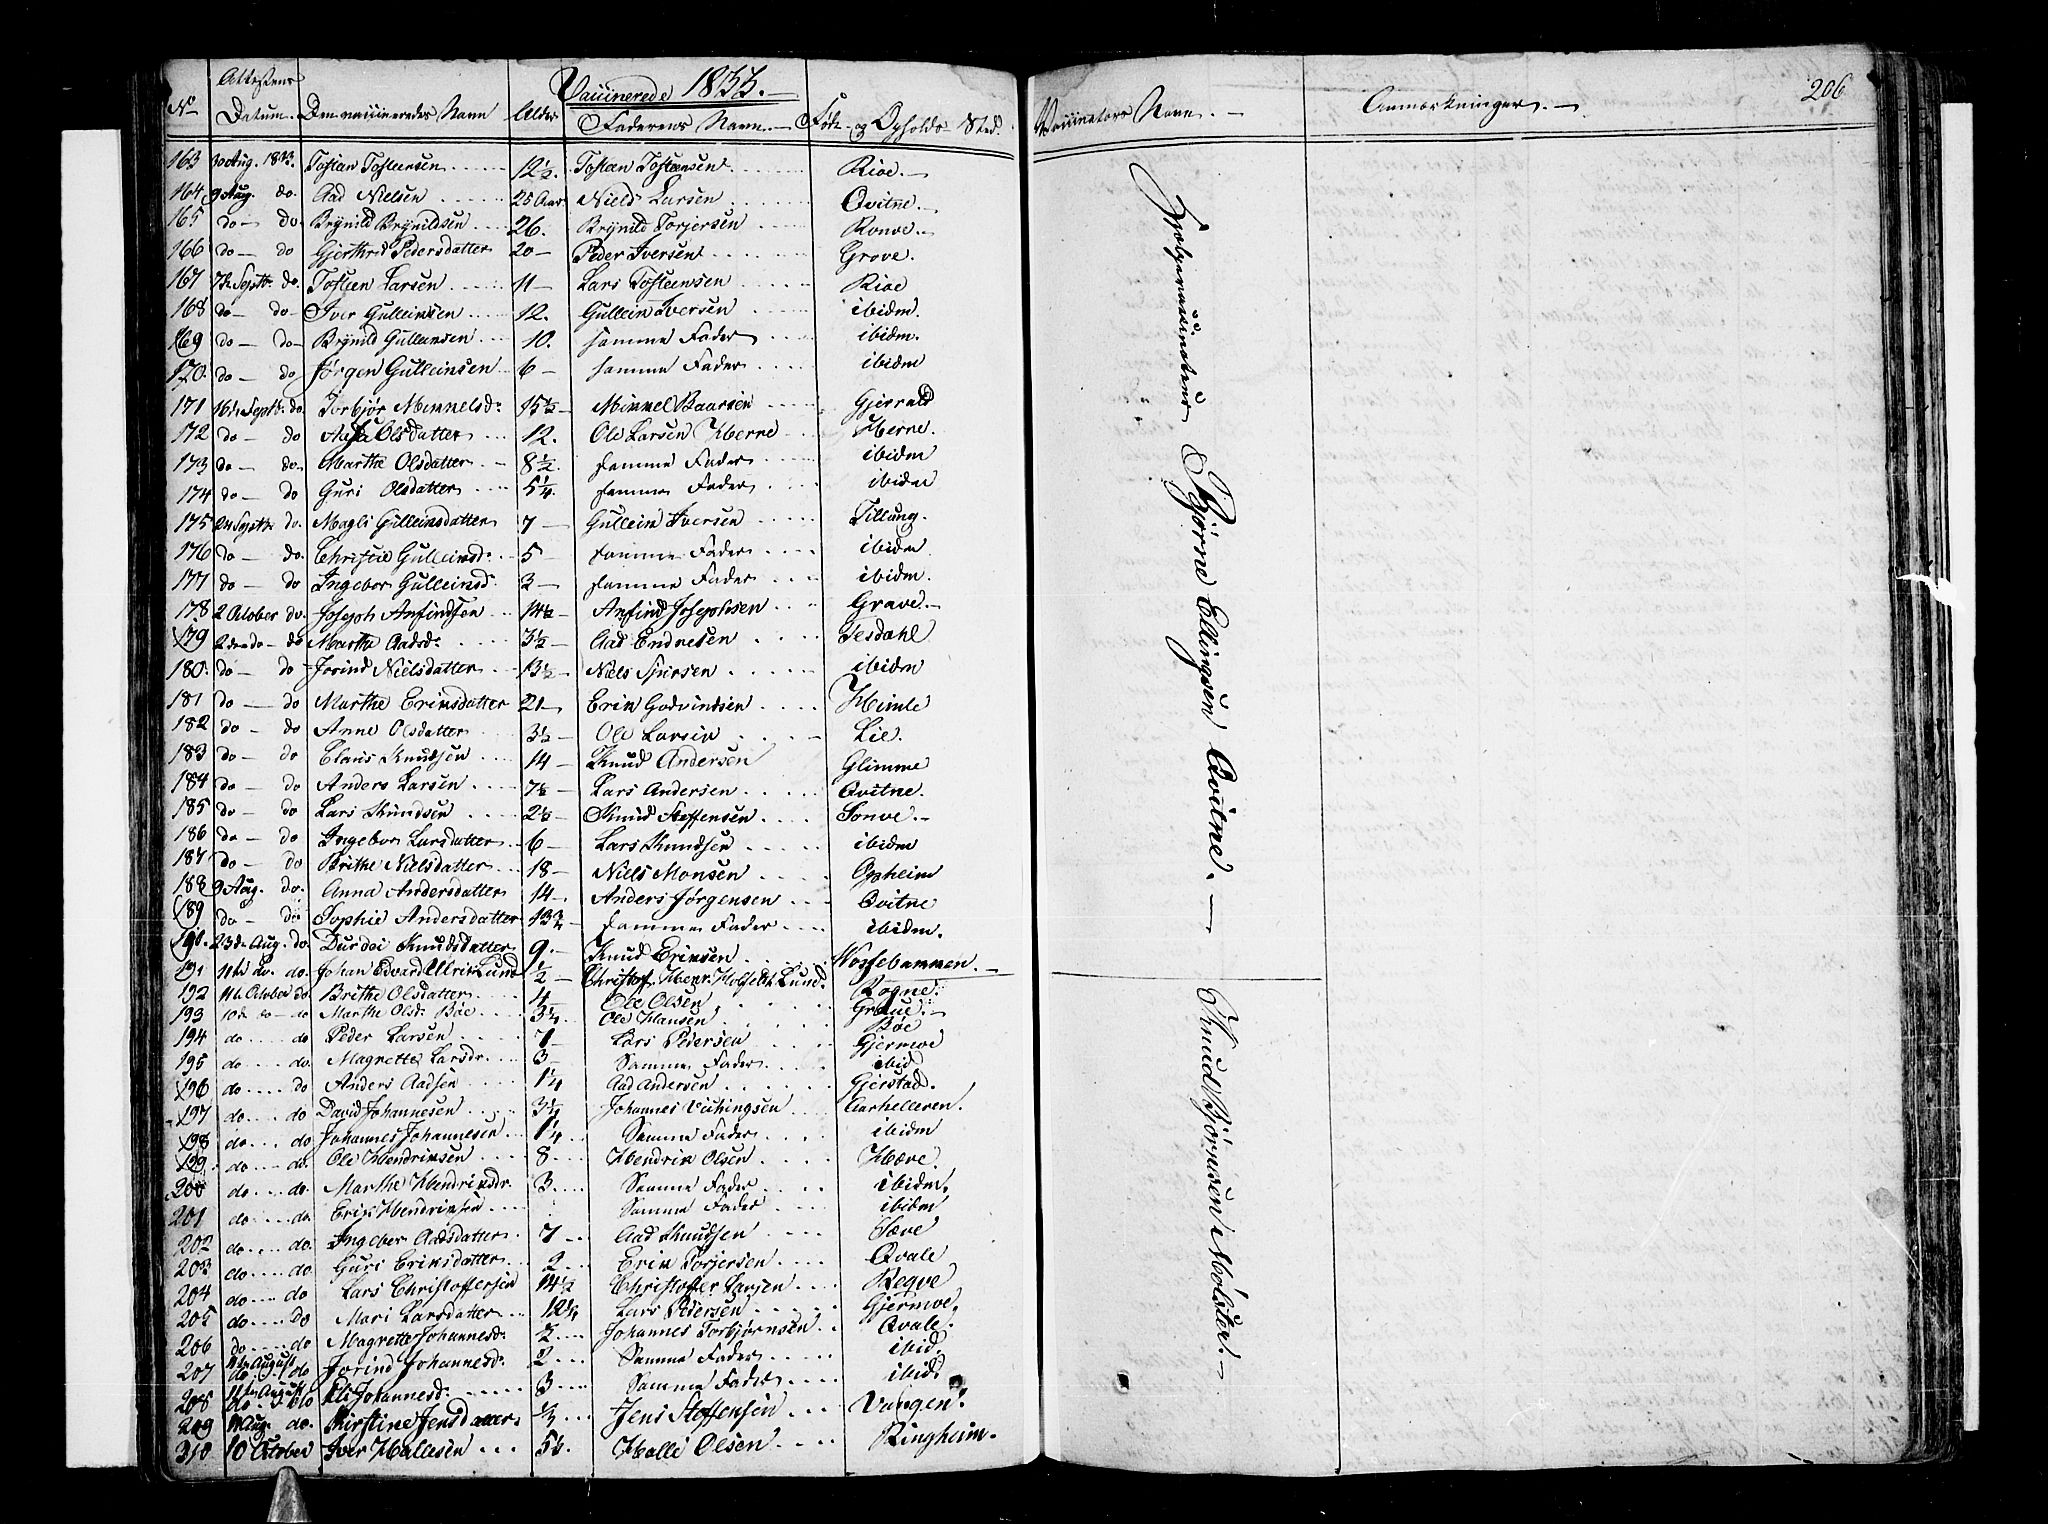 Vaccinerede 1833.
No Attestens Datum. Den vaccineredes Navn Alder Faderens Navn. Føde- og Opholds Sted.
Vaccinators Navn. Anmærkninger. 206
163 30 Aug. 1833. Tosten Tosteensen 12½. Tosteen Tosteensen Rioe.
164 9 Aug. do. Aad Nielsen 25 Aar. Niels Larsen Qvitne.
165 do do. Brynild Brynildsen 26. Brynild Torjersen Ronve.
166 do do Gjerthrud Pedersdatter 20 Peder Iversen Grove.
167 7de Septb. do. Tosteen Larsen 11 Lars Tosteensen Rioe
168 do do Iver Gulleinsen 12. Gullein Iversen ibidm.
169 do do Brynild Gulleinsen 10. samme Fader ibidm.
170. do do Jørgen Gulleinsen 6 samme Fader ibidm
171 16de Septb. do. Torbjør Mikkelsd: 15½ Mikkel Baarsen
172 do do Olsdatter 12. Ole Larsen Herne Herne.
173 do do. Marthe Olsdatter 8½. samme Fader ibidm
174 do do Guri Olsdatter 5¼. samme Fader ibidm
175 24 Septb. do. Magli Gulleinsdatter 7 Gullein Iversen Tillung.
176 do do. Christie Gulleinsd: 5 samme Fader ibidm
177 do do Ingebor Gulleinsd 3 samme Fader ibidm.
178 2 October do. Joseph Anfindsen 14½ Anfind Josephsen Grave.
179 2den do do Martha Aadsd: 3½ Aad Endresen Tesdahl
180. do do Jorind Nielsdatter 13½ Niels Sjursen ibidm
181 do do Marthe Eriksdatter 21 Erik Godvindsen Himle
182 do do Anne Olsdatter 3½ Ole Larsen Lie.
183 do do Claus Knudsen 14 Knud Andersen Glimme
184 do do Anders Larsen Lars Andersen Qvitne.
185 do do Lars Knudsen 2½ Knud Steffensen Sonve.
186 do do Ingebor Larsdatter 6 Lars Knudsen ibidm
187 do do Brithe Nielsdatter 18 Niels Monsen Opheim
188 9 Aug. do. Anna Andersdatter 14 Anders Jørgensen Qvitne
189 do do Sophie Andersdatter 13¾ samme Fader ibidm.
190. 23de Aug. do. Durdei Knudsdatter 9. Knud Eriksen
191 11te do. do. Johan Edvard Ulrik Lund ½ Christoff. Henr. Holfeldt Lund.
192 11te October do Brithe Olsdatter 4 Ole Olsen Rogne.
193 10de do do Marthe Olsd: Bøe 3¼ Ole Hansen
194 do do Peder Larsen 7 Lars Pedersen Gjermoe
195 do do. Magrette Larsdr. 3 Samme Fader ibid
196 do do Anders Aadsen 1¼ Aad Andersen Gjerstad.
197 do do David Johannesen 3¼ Johannes Vikingsen Aarhelleren.
198 do do Johannes Johannesen 1¼ Samme Fader ibidm
199 do do. Ole Hendriksen 8 Hendrik Olsen Hæve.
200 do do. Marthe Hendriksdr. 3. Samme Fader ibidm.
201 do do. Erik Hendriksen Samme Fader ibidm
202 do do. Ingebor Aadsdatter 7 Aad Knudsen Sæve
203 do do Guri Eriksdatter 2 Erik Torjersen Qvale
204 do do Lars Christoffersen 14½ Christoffer Larsen Reqve
205 do do Mari Larsdatter Lars Pedersen Gjermoe.
206 do do Magrette Johannesd: 7 Johannes Torbjørnsen Qvale.
207 11te August do Jorind Johannesd: 2 Samme Fader ibid.
208 11te August do Eli Johannesd: 3 Samme Fader ibid.
209 Aug. do. Kirstine Jensdatter ⅓ Jens Steffensen Vangen.
310 10 October Iver Hallesen 5¼. Halle Olsen Ringheim.
Hjelpevaccinateur Bjørne Ellingsen Qvitne.
Knud Bjørnsen Mølster.